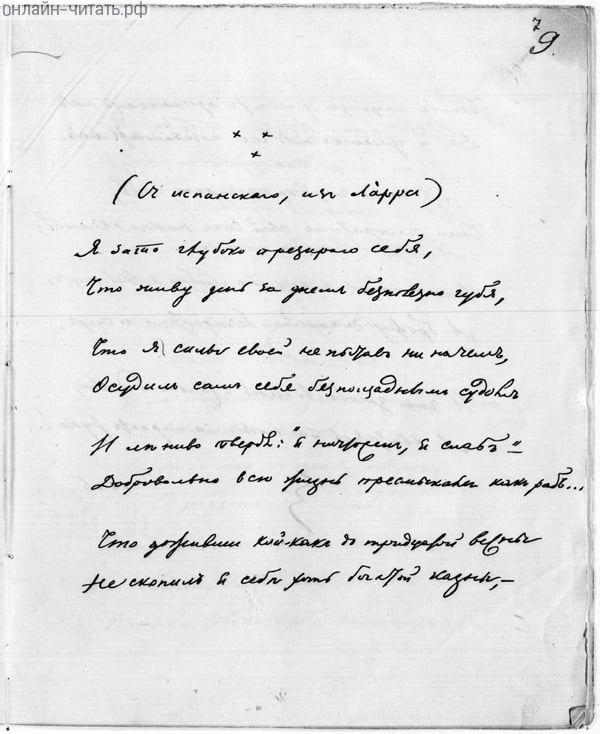 онлайн-читать.рф
7
9.
× ×
×
(Съ испанскаго, изъ Ла́рры)
Я за то глубоко презираю себя,
Что живу день за днемъ безполезно губя,
Что я силы своей не пытавъ ни на чемъ,
Осудилъ самъ себя безпощаднымъ судомъ
И лениво твердя: "я ничтоженъ, я слабъ"
Добровольно всю жизнь пресмыкался какъ рабъ...
Что доживши кой-какъ до тридцатой весны
Не скопилъ я себе хоть богатой казны, —